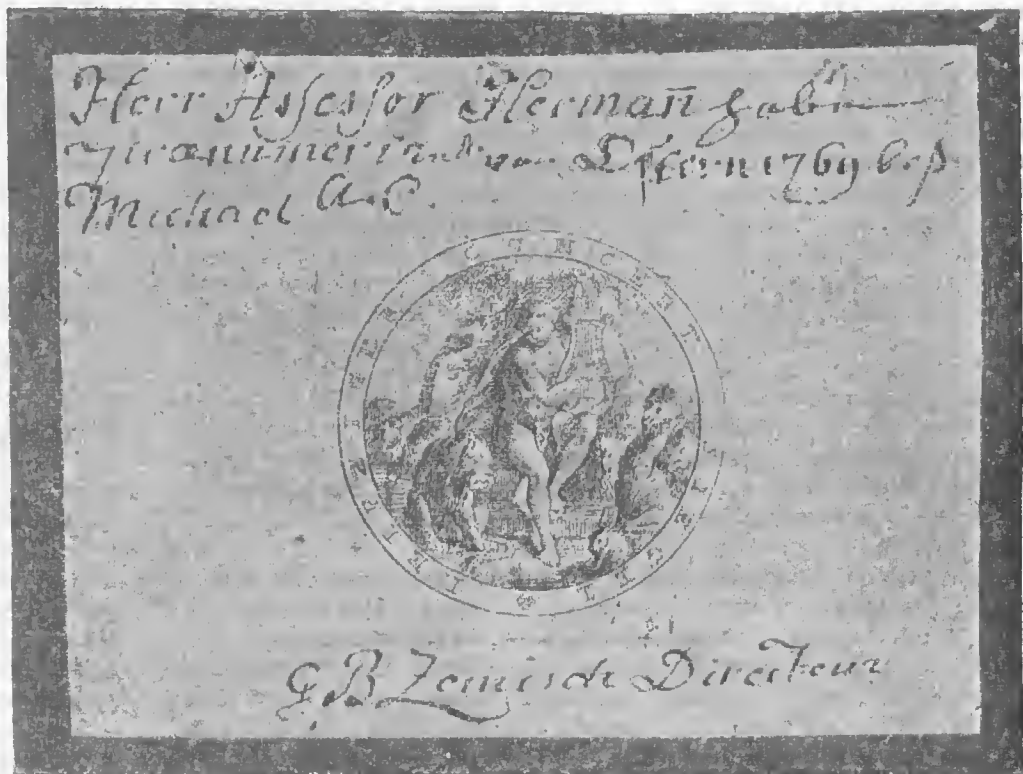 Herr Assessor Herman̄ haben
prænumeriert von Ostern 1769 biß
Michael a. c.
G B Zemisch Directeur